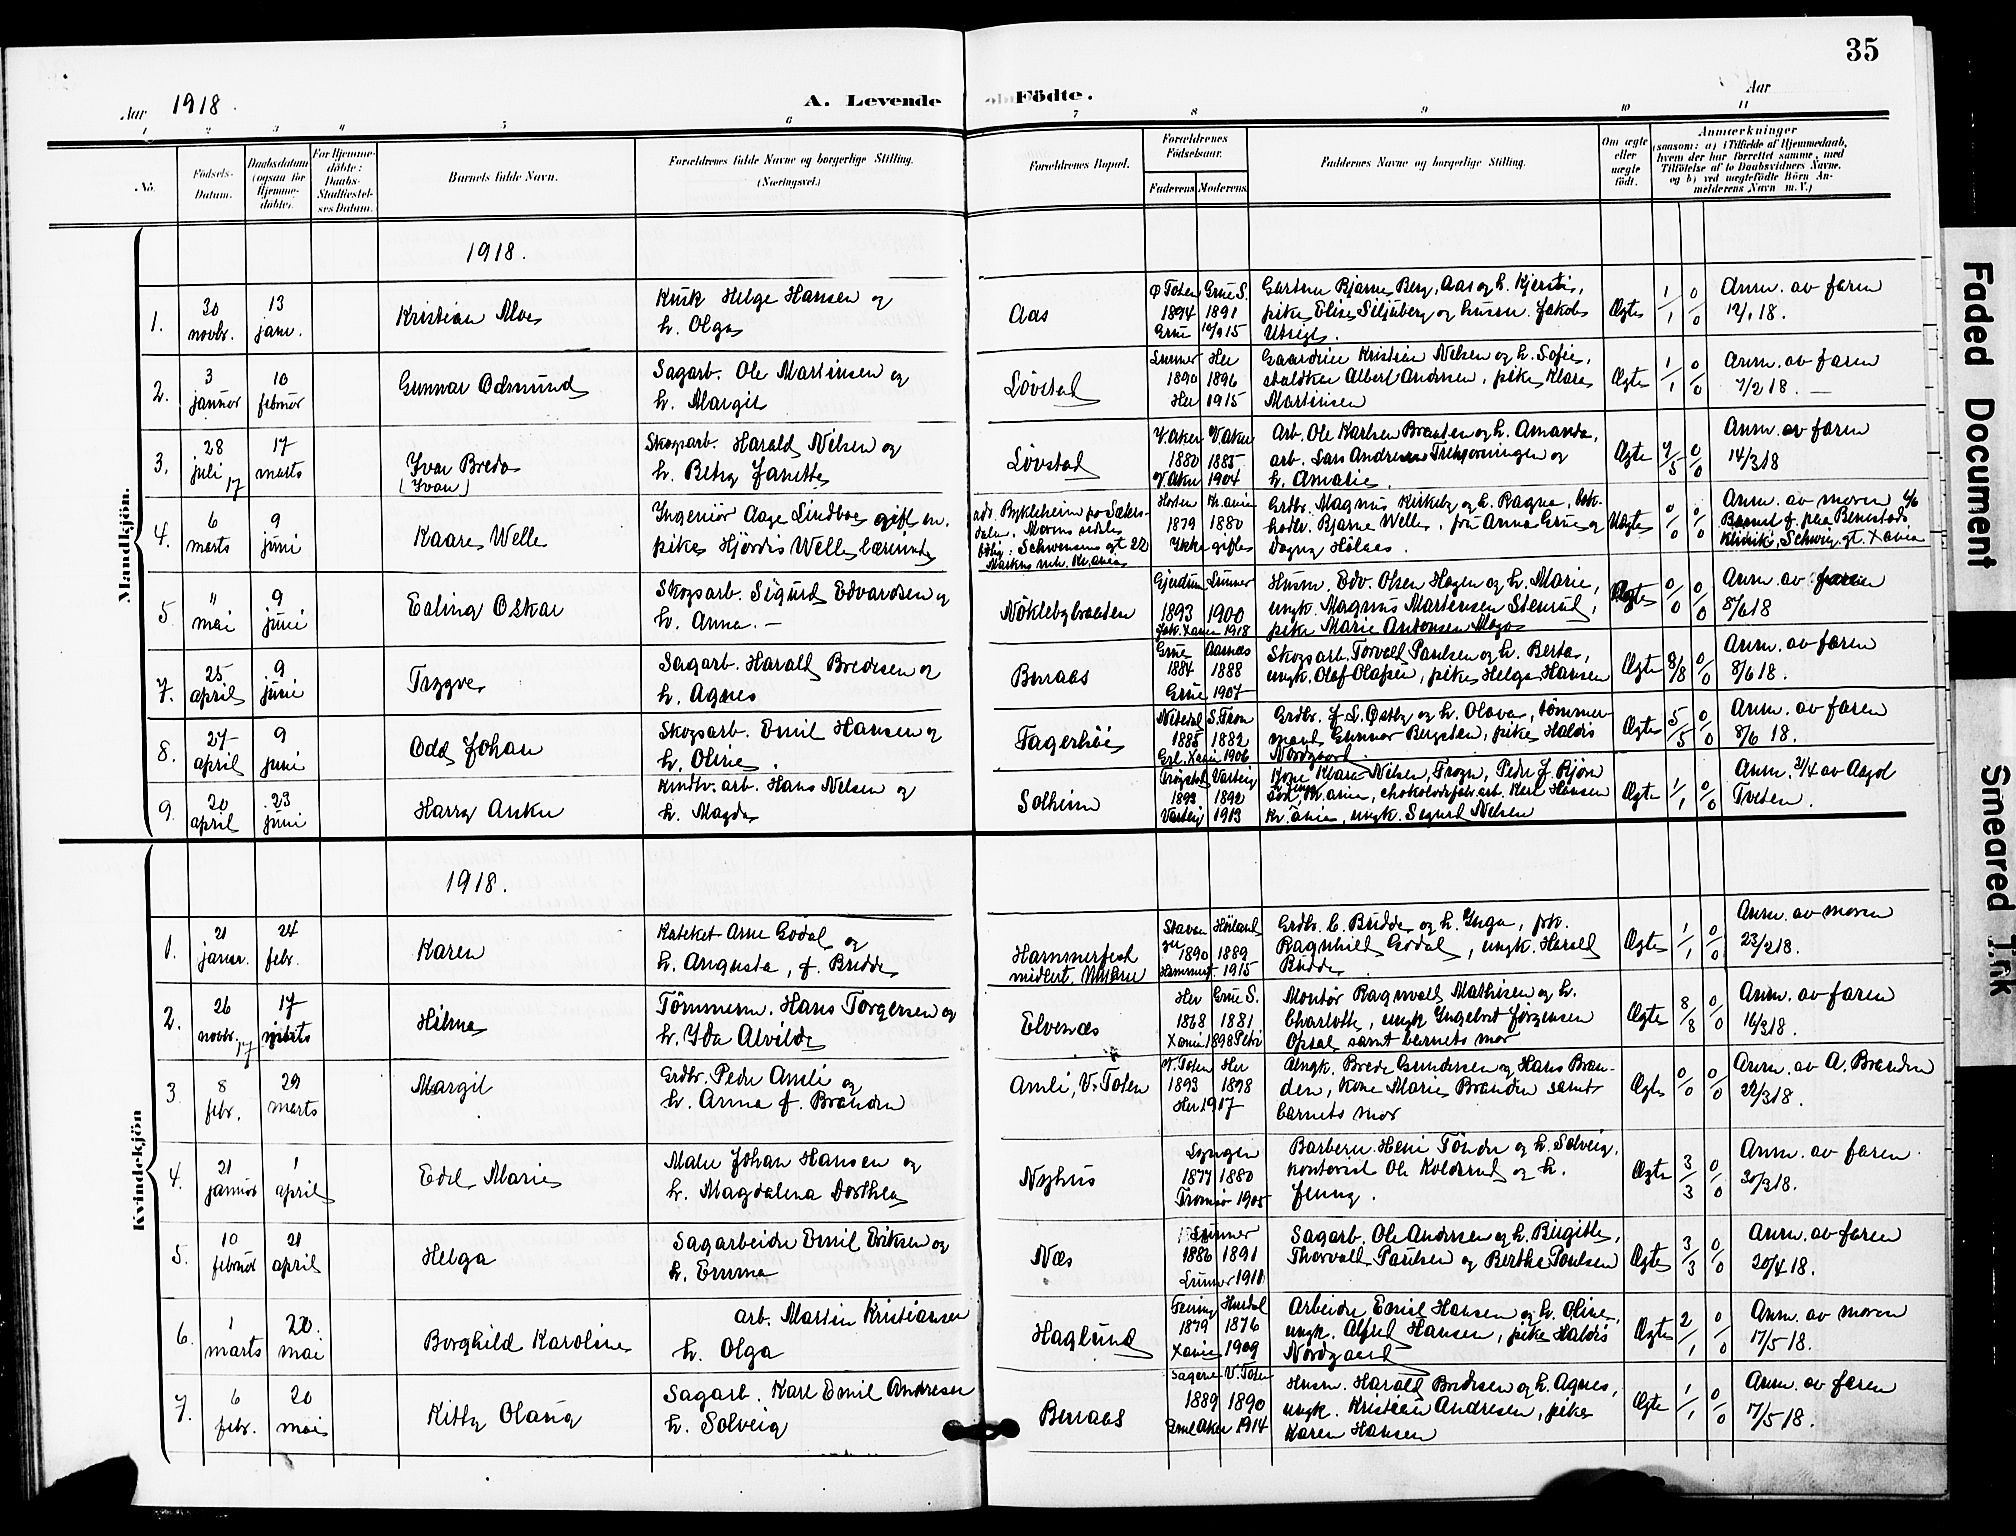 35
Aar 1918.
A. Levende Födte.
Aar
1 2 3 4 5 6 7 8 9 10 11
No.
Födsels-Datum.
Daabsdatum (ogsaa for Hjemme-döbte).
For Hjemme-döbte: Daabs-Stadfæstel-ses Datum.
Barnets fulde Navn.
Forældrenes fulde Navne og borgerlige Stilling.
(Næringsvei.)
Forældrenes Bopæl.
Forældrenes Födselsaar.
Faderens Moderens
Faddernes Navne og borgerlige Stilling.
Om ægte eller uægte födt.
Anmærkninger
(saasom: a) i Tilfælde af Hjemmedaab, hvem der har forrettet samme, med Tilföielse af to Daabsvidners Navne, og b) ved uægtefödte Börn An-melderens Navn m. V.)
Mandkjön.
1918.
1. 30 novbr. 13 janr. Kristian Alve Kusk Helge Hansen og h. Olga Aas Ø Toten 1894 Grue S. 1891 Grue 1915 Gartner Bjarne Berg, Aas og h. Kjersti, pike Elise Siljuberg og husm. Jakob Utsigt. Ægte 1/1 0/0 Anm. av faren 12/1 18.
2. 3 januar 10 februar Gunnar Odmund Sagarb. Ole Martinsen og h. Margit Løvstad Lunner 1890 Her 1896 Her 1915 Gaardeier Kristian Nilsen og h. Sofie, staldkar Albert Andersen, pike Klara Martinsen Ægte 1/1 0/0 Anm. av faren 7/2 18. —
3. 28 juli 17 17 marts Yvar Bredo (Ivar) Skogsarb. Harald Nilsen og h. Betzy Janette Løvstad V. Aker 1880 V. Aker 1885 V. Aker 1904 Arb. Ole Karlsen Braaten og h. Amanda, arb. Lars Andersen Trehjørningen og h. Amalie. Ægte 7/5 0/0 Anm. av faren 14/3 18
4. 6 marts 9 juni Kaare Welle Ingeniør Aage Lindboe gift en. pike Hjørdis Welle lærerinde adr. Bykleheim pr Sætersdalen. Morens sidste bolig: Schwensens gt 22 Horten 1879 Kr.ania 1880 Ikke gifte Grdbr. Magnus Kirkeby og h. Ragna, bokhadlr. Bjarne Welle, frk Anna Grue og Dagny Hølaas. Uægte 0/0 0/0 Anm. av moren 6/6 Barnet f. paa Benestads Klinik, Schweig. gt. Xania
5. " mai 9 juni Erling Oskar Skogsarb. Sigurd Edvardsen og h. Anna. — Nøklebybraaten Gjerdrum 1893 Lunner 1900 Jak. Xania 1918 Husm. Edv. Olsen Hagen og h. Marie, ungk. Magnus Martinsen Stenrud, pike Marie Antonsen Mago Ægte 0/0 0/0 Anm. av faren 8/6 18
7. 25 april 9 juni Trygve Sagarb. Harald Bredesen og h. Agnes Berraas Grue 1884 Aasnes 1888 Grue 1907 Skogsarb. Torvald Paulsen og h. Berta, ungk. Olaf Olafsen, pike Helga Hansen Ægte 8/8 0/0 Anm. av faren 8/6 18.
8. 27 april 9 juni Odd Johan Skogsarb. Emil Hansen og h. Oline. Fagerhøi Nitedal 1885 S. Fron 1882 Gel. Xania 1906 Grdbr. J. L. Østby og h. Olava, tømmermand Gunnar Bergsten, pike Haldis Nordgaard Ægte 5/5 0/0 Anm. av faren 8/6 18.
9. 20 april 23 juni Harry Anker Kindtv. arb. Hans Nilsen og h. Magda Solheim Trøgstad 1893 Varteig 1892 Varteig 1913 Kone Klara Nilsen, Trogn, Peder J. Bjørn, Kr.ania, chokoladefabr.arb. Karl Hansen Kr.ania, ungk. Sigurd Nilsen Ægte 1/1 0/0 Anm. 2/4 av Aagot Tveten.
Kvindekjön
1918.
1. 21 januar. 24 febr. Karen Kateket Arne Godal og h. Augusta, f. Budde Hammerfest midlert. Stavanger 1890 Høiland 1889 Hammerf. 1915 Grdbr. C. Budde og h. Inga, frk. Ragnhild Godal, ungk. Harald Budde Ægte 1/1 0/0 Anm. av moren 23/2 18.
2. 26 novbr. 17 17 marts Hilma Tømmerm. Hans Torgersen og h. Ida Alvilde Elvenæs Her 1868 Grue S. 1881 Xania 1898 Petri Montør Ragnvald Mathisen og h. Charlotte, ungk Ingebret Jørgensen Opsal samt barnets mor Ægte 8/8 0/0 Anm. av faren 16/3 18.
3. 8 febr. 29 marts Margit Grdbr. Peder Amli og h. Anna f. Branden Amli, V. Toten V. Toten 1893 Her 1898 Her 1917 Ungk. Brede Gundersen og Hans Branden, kone Marie Branden samt barnets mor Ægte 0/0 0/0 Anm. av A. Branden 22/3 18.
4. 21 januar 1 april Edel Marie Maler Johan Hansen og h. Magdalena Dorthea Nyhus Lyngen 1877 1880 Tromsø 1905 Barberer Henr Tønder og h. Solveig, kontorist Ole Koldsrud og h. Jenny. Ægte 3/3 0/0 Anm. av faren. 30/3 18.
5. 10 februar 21 april Helga Sagarbeider Emil Eriksen og h. Emma Næs Lunner 1886 1891 Lunner 1911 Sagarb. Ole Andersen og h. Birgitte, Thorvald Paulsen og Bertha Poulsen Ægte 3/3 0/0 Anm. av faren 20/4 18.
6. 1 marts 20. mai Borghild Karoline arb. Martin Kristiansen h. Olga Haglund Feiring 1879 Hurdal 1876 Xania 1909 Arbeider Emil Hansen og h. Oline, ungk. Alfred Hansen, pike Haldis Nordgaard Ægte 2/1 0/0 Anm. av moren 17/5 18.
7. 6 febr. 20 mai Kitty Olaug Sagarb. Karl Emil Andresen h. Solveig Berraas Sagene 1889 V. Toten 1890 Gml Aker 1914 Husm. Harald Bredesen og h. Agnes, ungk. Kristian Andresen, pike Karen Hansen Ægte 1/1 0/0 Anm. av faren 17/5 18.
Faded Document
Smeared Ink